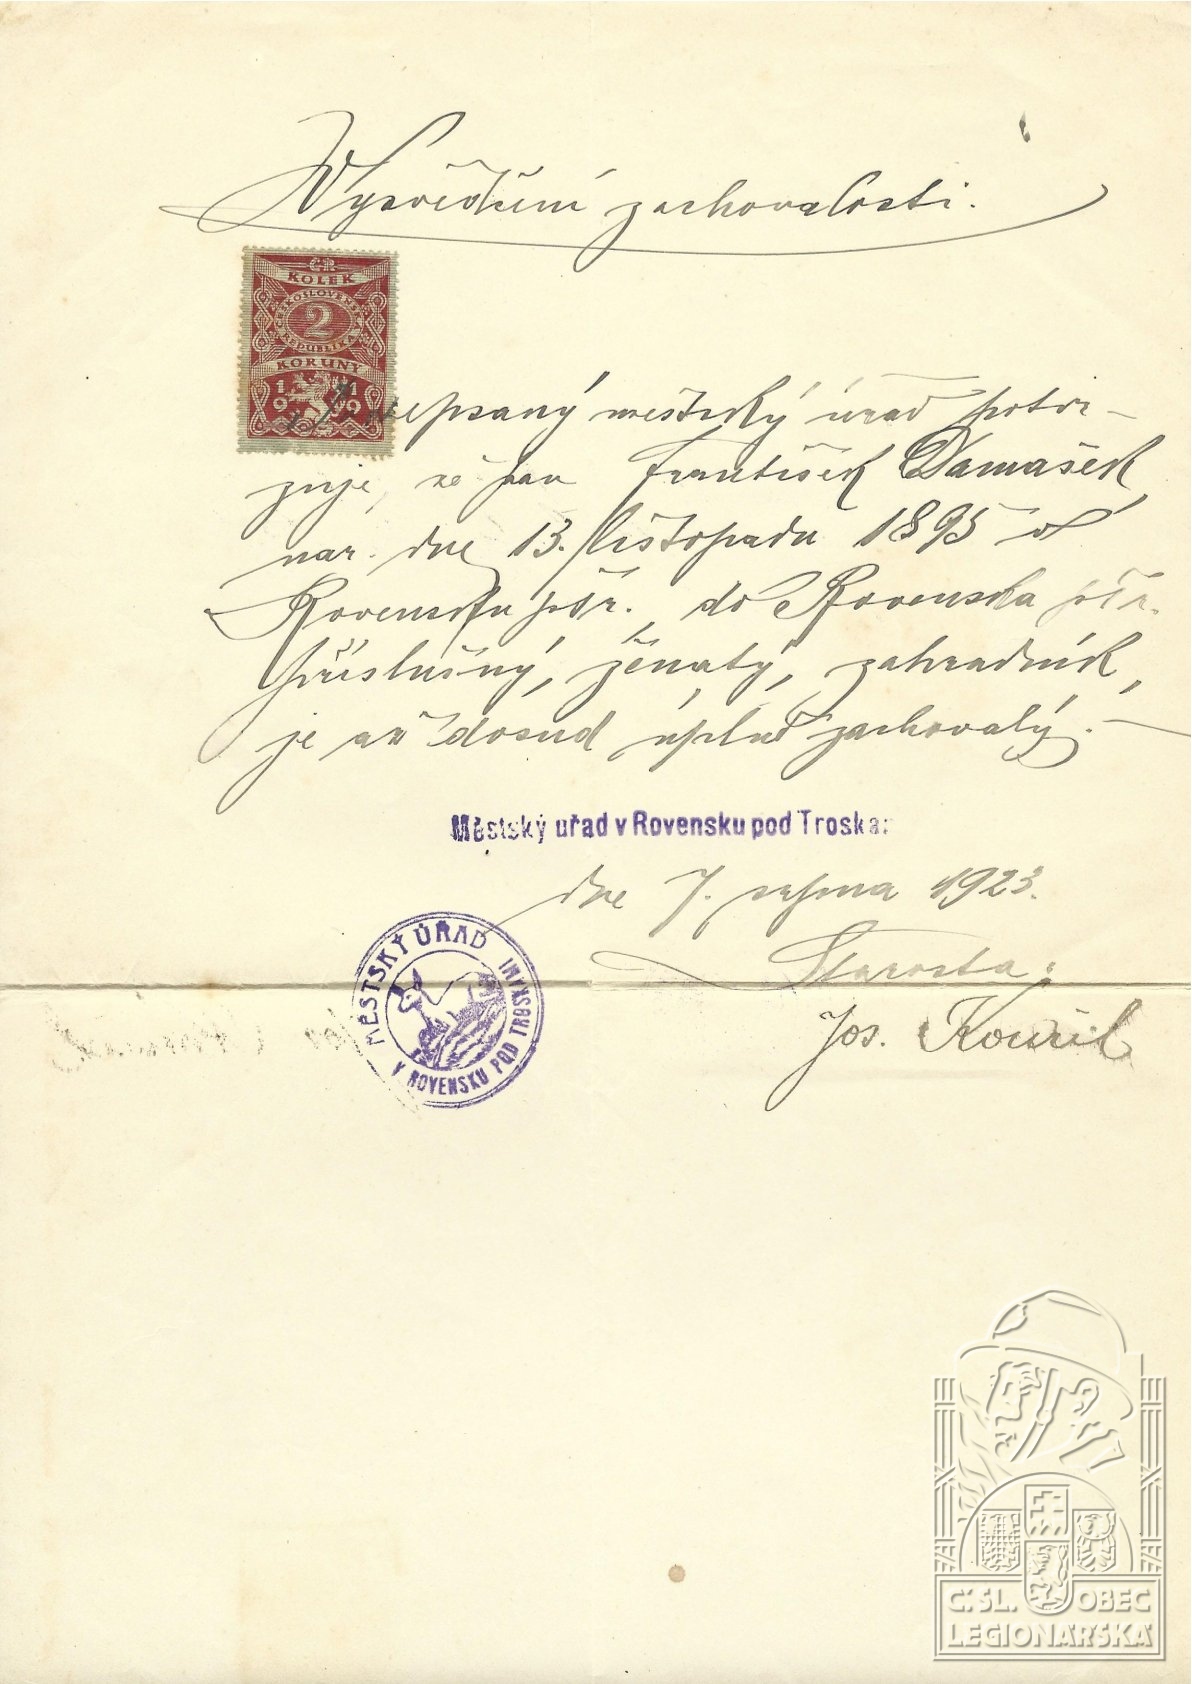 Vysvědčení zachovalosti.
ČR
KOLEK
ČESKOSLOVENSKÁ
2
REPUBLIKA
KORUNY
1919
Nížepsaný městský úřad potvr-
zuje, že pan František Damašek,
nar. dne 13. listopadu 1895 v
Rovensku p/Tr., do Rovenska p/Tr.
příslušný, ženatý, zahradník,
je až dosud úplně zachovalý. —
Městský uřad v Rovensku pod Troska:
dne 7. srpna 1923.
Starosta:
Jos. Kouřil
MĚSTSKÝ ÚŘAD
V ROVENSKU POD TROSKAMI
Č.SL. OBEC
LEGIONÁŘSKÁ